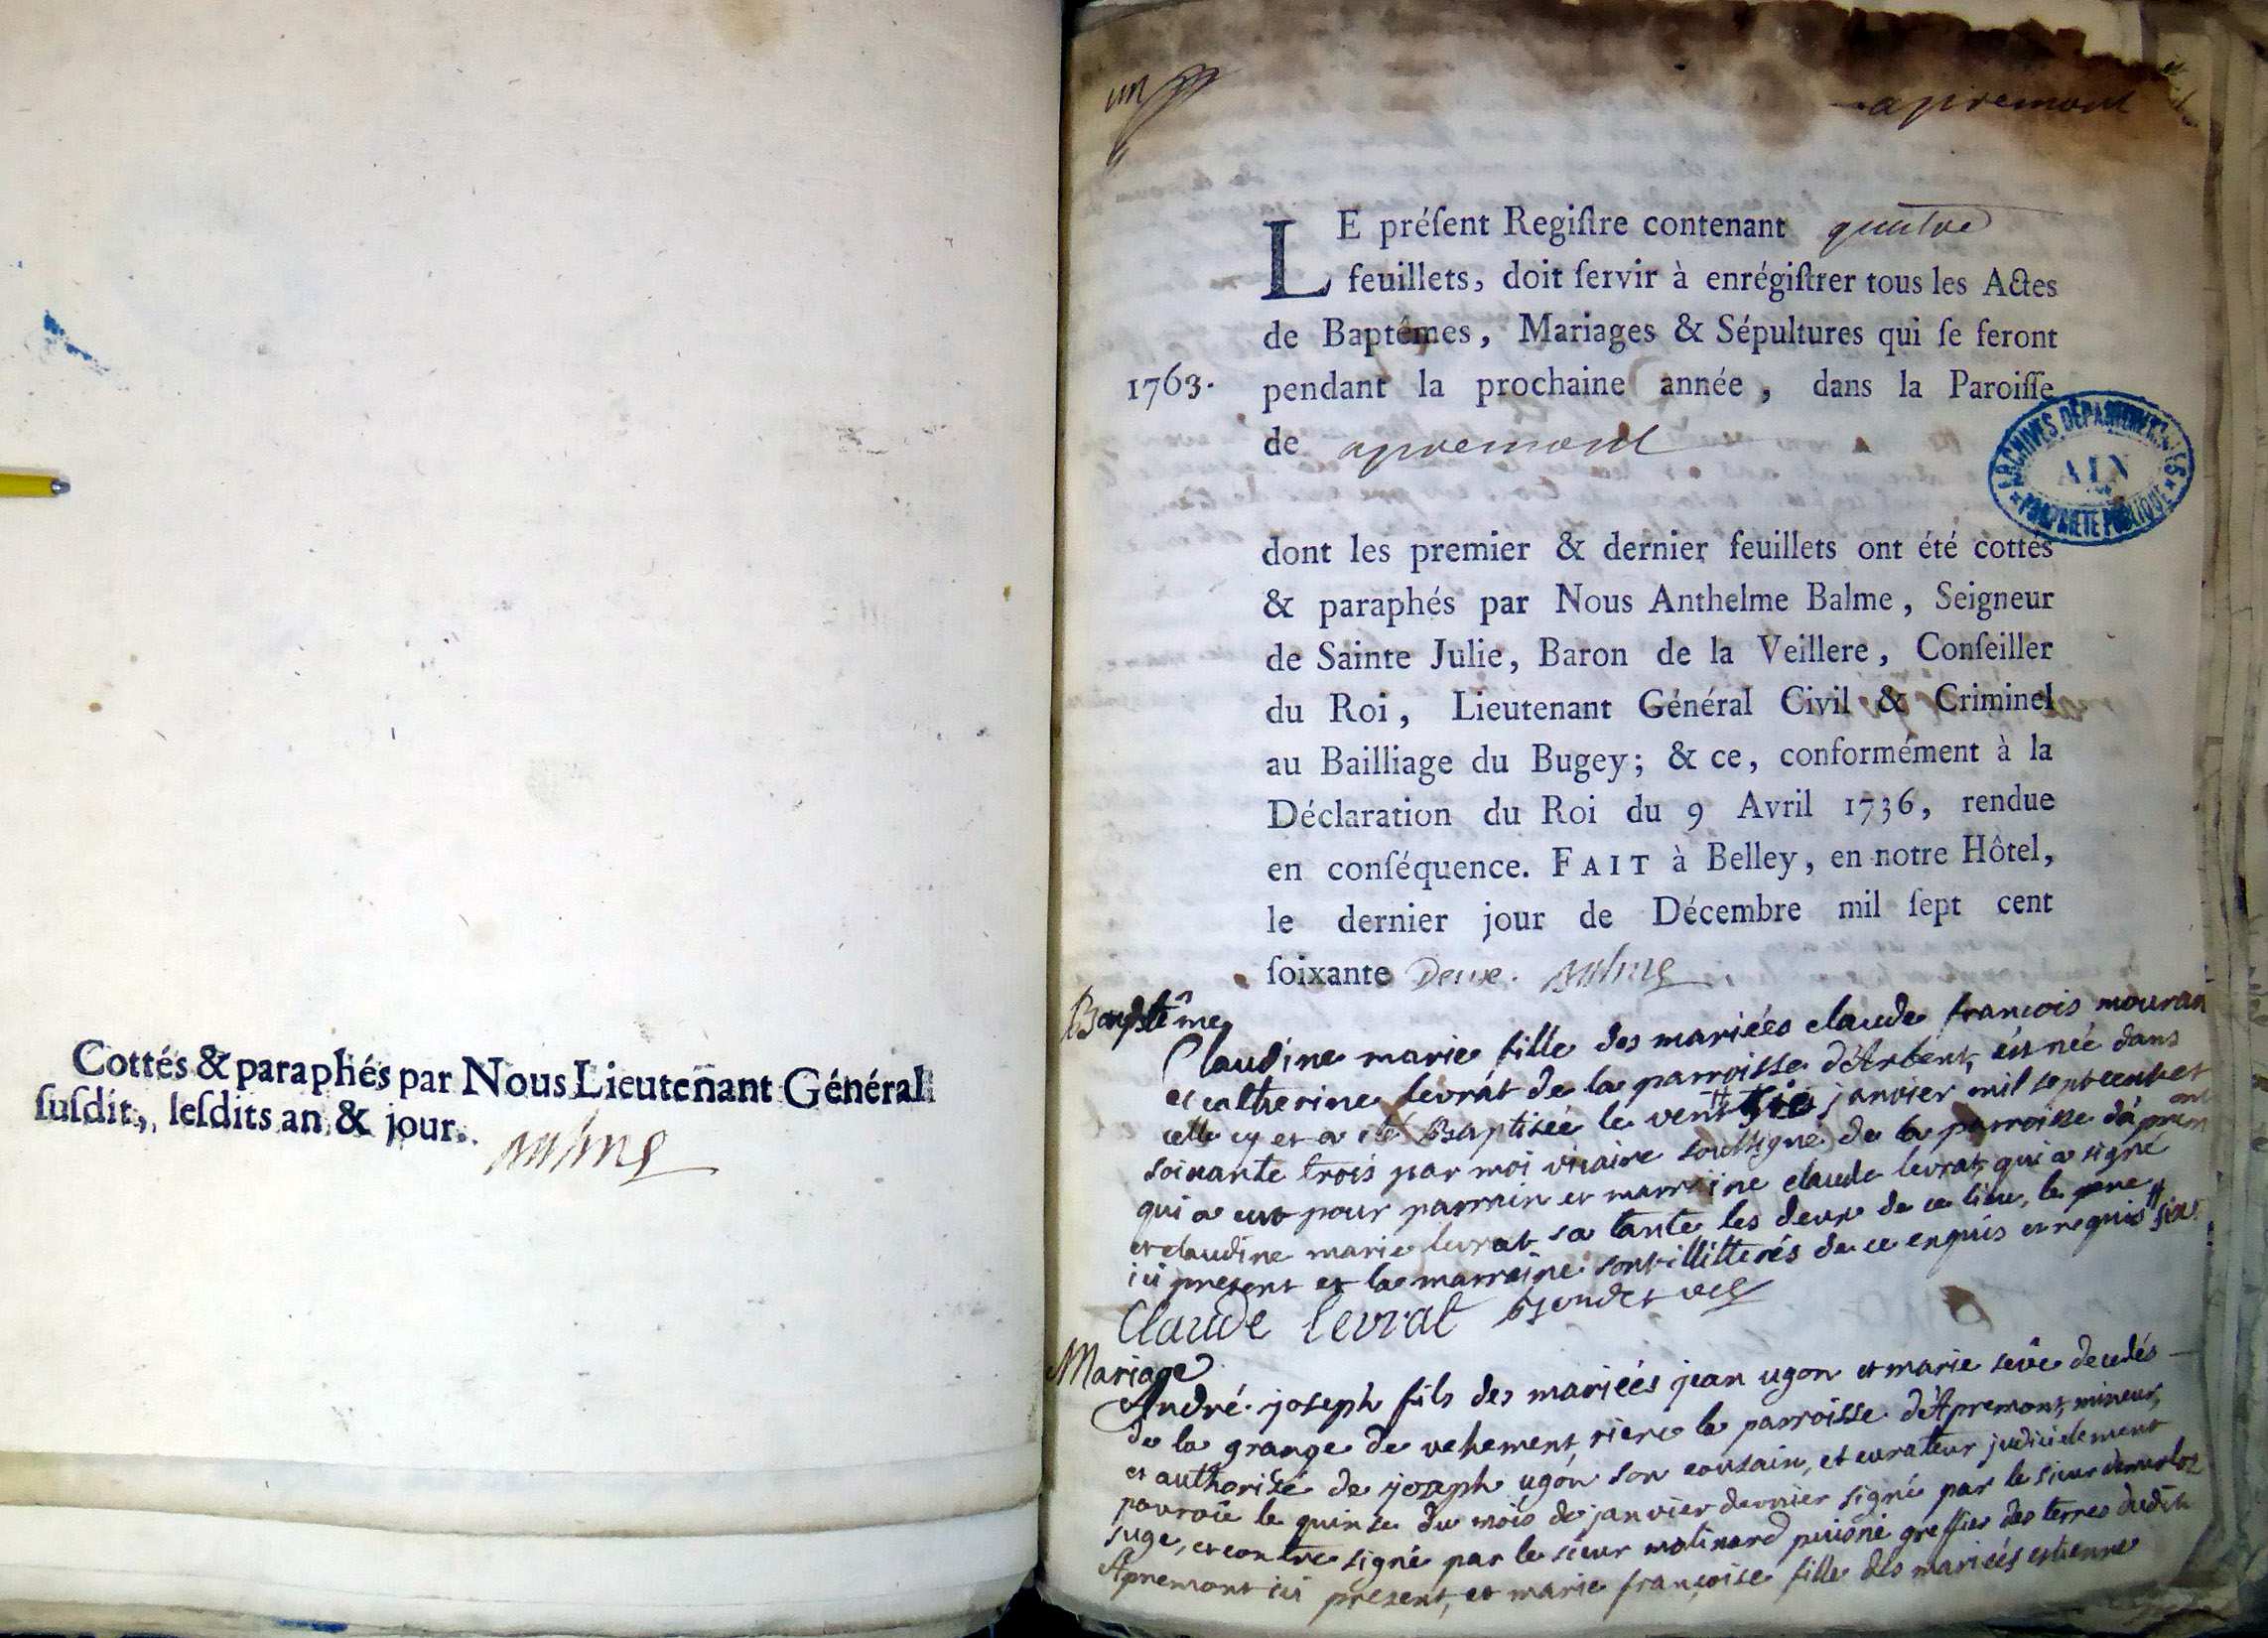 Cottés & paraphés par Nous Lieutenant Général
ſuſdit, leſdits an & jour.
Balme
un
apremont
LE préſent Regiſtre contenant quatre
feuillets, doit ſervir à enrégiſtrer tous les Actes
de Baptêmes, Mariages & Sépultures qui ſe feront
1763. pendant la prochaine année, dans la Paroiſſe
de apremont
ARCHIVES DÉPARTEMENTALES
AIN
PROPRIÉTÉ PUBLIQUE
dont les premier & dernier feuillets ont été cottés
& paraphés par Nous Anthelme Balme, Seigneur
de Sainte Julie, Baron de la Veillere, Conſeiller
du Roi, Lieutenant Général Civil & Criminel
au Bailliage du Bugey; & ce, conformément à la
Déclaration du Roi du 9 Avril 1736, rendue
en conſéquence. FAIT à Belley, en notre Hôtel,
le dernier jour de Décembre mil ſept cent
ſoixante Deux. Balme
Baptême
Claudine marie fille des mariées claude francois mouran
et catherine levrat de la parroisse d'Arbent, est née dans
celle cy et a été Baptisée le vent janvier mil sept cent et
soixante trois par moi vicaire soussigné de la parroisse d'aprem
qui a eut pour parrain et marraine claude levrat qui a signé
et claudine marie levrat sa tante les deux de ce lieu, le pere
ici present et la marraine sont illitterés de ce enquis et requis # six
Claude levrat
Mariage
André joseph fils des mariéés jean ugon et marie sevè decedés
de la grange de vehement, riere la parroisse d'Apremont, mineur,
et authorisé de joseph ugon son cousain, et curateur judicielement
pourvû le quinse du mois de janvier dernier signé par le sieur
juge, et contre signé par le sieur molinard puisné greffier des terres dudit
Apremont ici present, et marie françoise fille des mariéés estienne